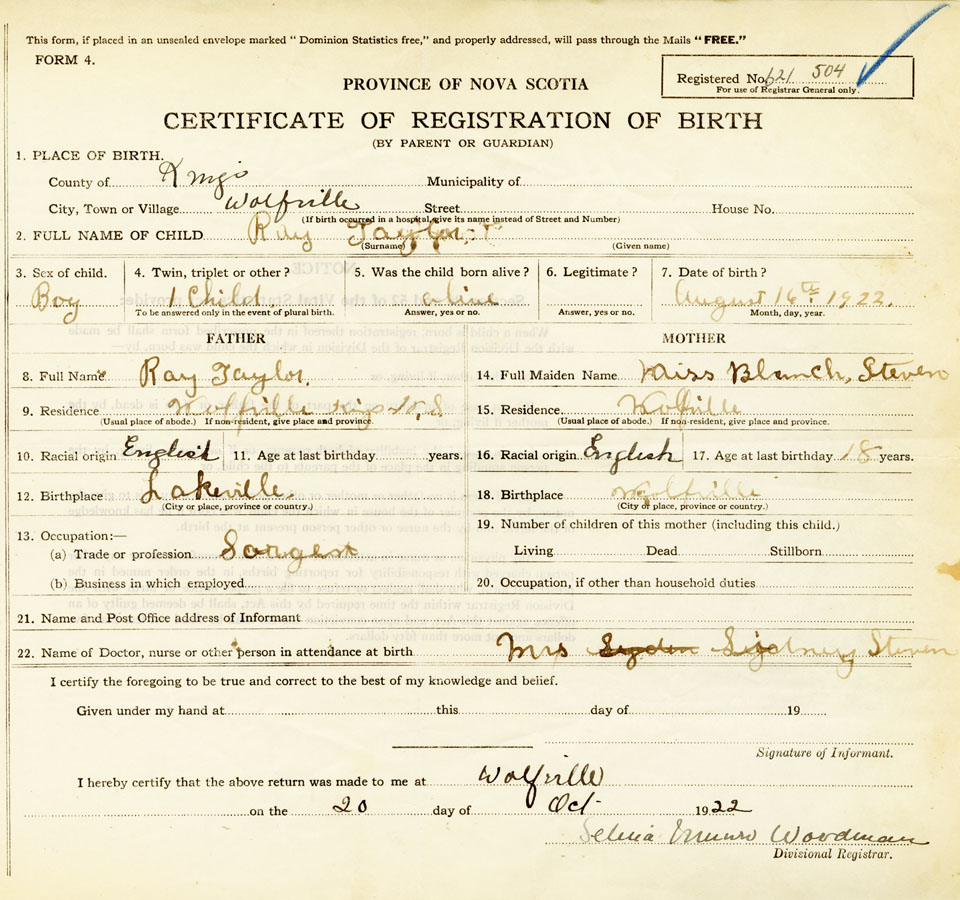 This form, if placed in an unsealed envelope marked "Dominion Statistics free," and properly addressed, will pass through the Mails "FREE."
FORM 4.
Registered No. 621 504
For use of Registrar General only.
PROVINCE OF NOVA SCOTIA
CERTIFICATE OF REGISTRATION OF BIRTH
(BY PARENT OR GUARDIAN)
1. PLACE OF BIRTH.
County of Kings Municipality of
City, Town or Village Wolfville Street House No.
(If birth occurred in a hospital, give its name instead of Street and Number)
2. FULL NAME OF CHILD Ray Taylor
(Surname) (Given name)
3. Sex of child. 4. Twin, triplet or other? 5. Was the child born alive? 6. Legitimate? 7. Date of birth?
Boy 1 Child alive August 16th 1922.
To be answered only in the event of plural birth. Answer, yes or no. Answer, yes or no. Month, day, year.
FATHER MOTHER
8. Full Name Ray Taylor. 14. Full Maiden Name Miss Blanch, Steven
9. Residence Wolfville Kings N.S 15. Residence Wolfville
(Usual place of abode.) If non-resident, give place and province. (Usual place of abode.) If non-resident, give place and province.
10. Racial origin English 11. Age at last birthday years. 16. Racial origin English 17. Age at last birthday 18 years.
12. Birthplace Lakeville. 18. Birthplace Wolfville
(City or place, province or country.) (City or place, province or country.)
13. Occupation:— 19. Number of children of this mother (including this child.)
(a) Trade or profession Sargent Living Dead Stillborn
(b) Business in which employed 20. Occupation, if other than household duties
21. Name and Post Office address of Informant
22. Name of Doctor, nurse or other person in attendance at birth Mrs Sydney Steven
I certify the foregoing to be true and correct to the best of my knowledge and belief.
Given under my hand at this day of 19
Signature of Informant.
I hereby certify that the above return was made to me at Wolfville
on the 20 day of Oct 1922
Selina Munro Woodman
Divisional Registrar.